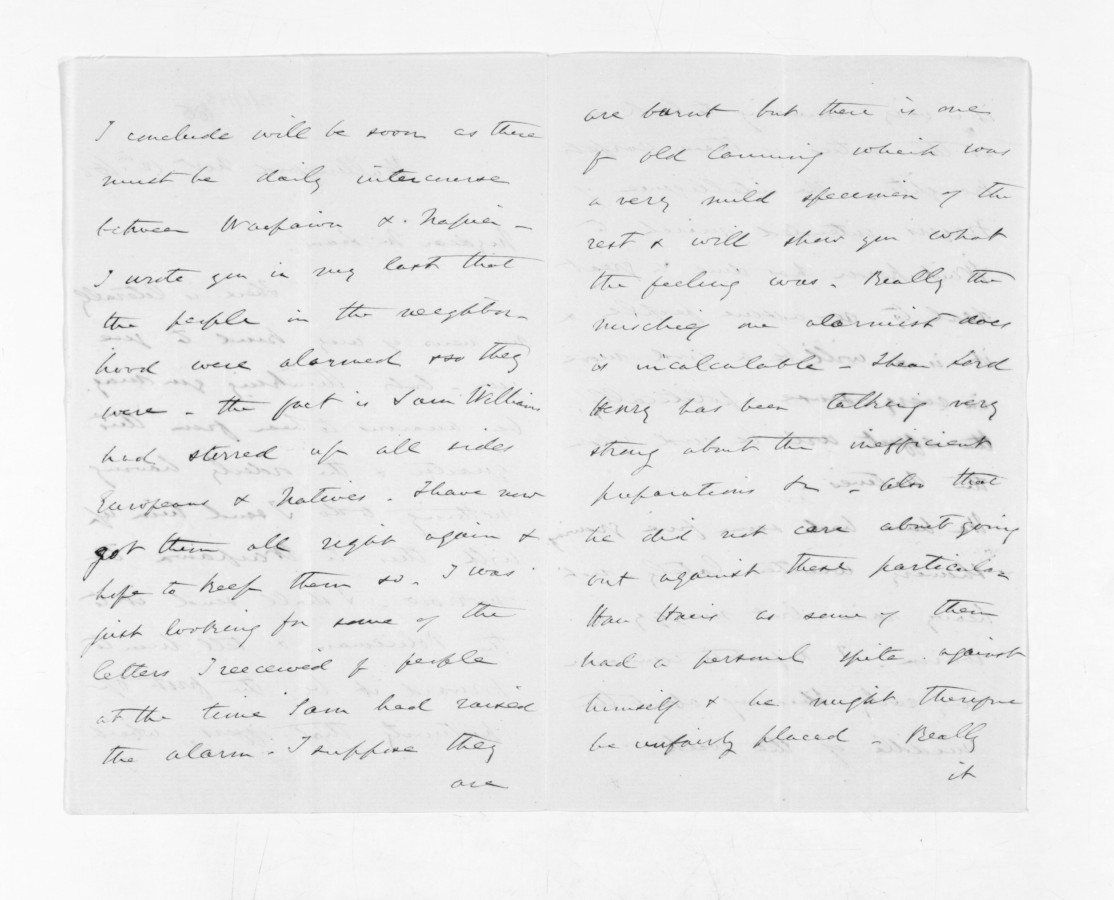 I conclude will be soon as there
must be daily intercourse
between Waipawa & Napier –
I wrote you in my last that
the people in the neighbor-
hood were alarmed & so they
were – the fact is Sam Williams
had stirred up all sides
Europeans & Natives. I have now
got them all right again &
hope to keep them so. I was
just looking for some of the
letters I received f people
at the time Sam had raised
the alarm – I suppose they
are
are burnt but there is one
f old Canning which was
a very mild specimen of the
rest & will show you what
the feeling was. Really the
mischief one alarmist does
is incalculable – I hear Lord
Henry has been talking very
strong about the inefficient
preparations &c – also that
he did not care about going
out against these particular
Hau Haus as some of them
had a personal spite against
himself & he might therefore
be unfairly placed – Really
it